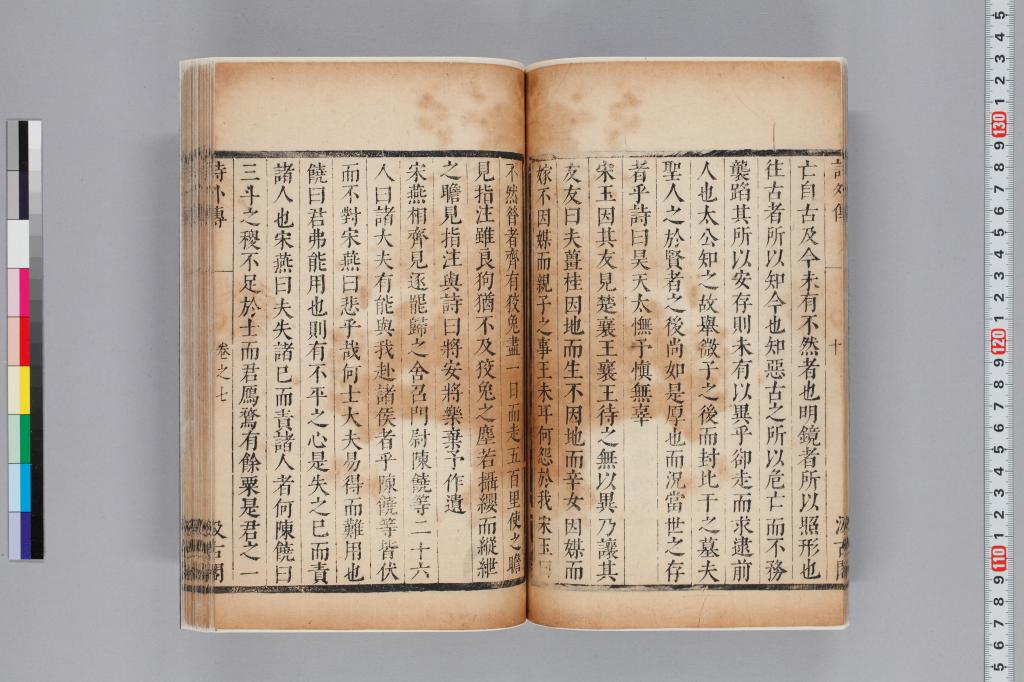 詩外傳
十
汲古閣
亡自古及今未有不然者也明鏡者所以照形也
往古者所以知今也知惡古之所以危亡而不務
襲蹈其所以安存則未有以異乎卻走而求逮前
人也太公知之故舉微子之後而封比干之墓夫
聖人之於賢者之後尚如是厚也而況當世之存
者乎詩曰昊天太憮予慎無辜
宋玉因其友見楚襄王襄王待之無以異乃讓其
友友曰夫薑桂因地而生不因地而辛女因媒而
嫁不因媒而親子之事王未耳何怨於我宋玉曰
不然昔者齊有狡兔盡一日而走五百里使之瞻
見指注雖良狗猶不及狡兔之塵若攝纓而縱紲
之瞻見指注與詩曰將安將樂棄予作遺
宋燕相齊見逐罷歸之舍召門尉陳饒等二十六
人曰諸大夫有能與我赴諸侯者乎陳饒等皆伏
而不對宋燕曰悲乎哉何士大夫易得而難用也
饒曰君弗能用也則有不平之心是失之己而責
諸人也宋燕曰夫失諸己而責諸人者何陳饒曰
三斗之稷不足於士而君鴈鶩有餘粟是君之一
詩外傳
卷之七
汲古閣
5
4
3
2
1
130
9
8
7
6
5
4
3
2
1
120
9
8
7
6
5
4
3
2
1
110
9
8
7
6
5